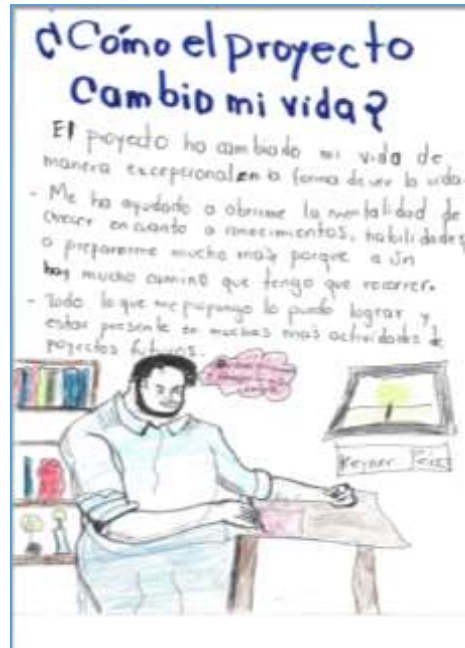 ¿Cómo el proyecto
Cambio mi vida?
El poyecto ha cambiado mi vida de
manera excepcional en la forma de ver la vida.
- Me ha ayudado a abrirme la mentalidad de
crecer en cuanto a conocimientos, habilidades,
a prepararme mucho más porque a un
hay mucho camino que tengo que recorrer.
- Todo lo que me popongo lo puedo lograr y
estar presente en muchas mas actividades de
poyectos futuros.
Keyner